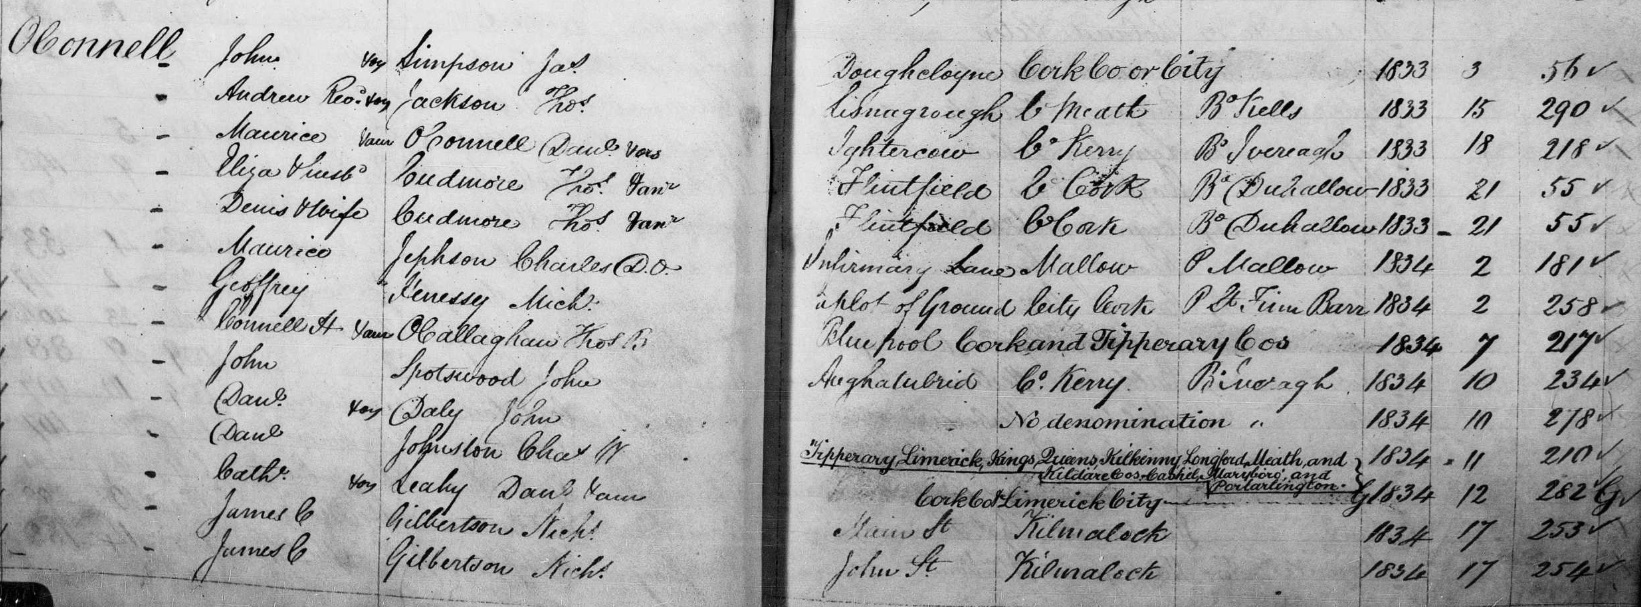 OConnell John & or Simpson Jas Doughcloyne Cork Co or City 1833 3 56 ✓
" Andrew Revd & or Jackson Thos Lisnagrough Co Meath Bo Kells 1833 15 290 ✓
" Maurice & anr O'Connell Danl & ors Ightercow Co Kerry Bo Iveragh 1833 18 218 ✓
" Eliza & husbd Cudmore Thos & anr Flintfield Co Cork Bo Duhallow 1833 21 55 ✓
" Denis & Wife Cudmore Thos & anr Flintfield Co Cork Bo Duhallow 1833 21 55 ✓
" Maurice Jephson Charles D.O. Infirmary Lane Mallow P Mallow 1834 2 181 ✓
" Geoffrey Fenessy Michl a plot of Ground City Cork P St. Finn Barr 1834 2 258 ✓
" Connell A & anr O'Callaghan Thos B Blue pool Cork and Tipperary Cos 1834 7 217 ✓
" John Spotswood John Aughatubrid Co. Kerry Bo Iveragh 1834 10 234 ✓
" Danl & or Daly John No denomination " 1834 10 278 ✓
" Danl Johnston Chas W Tipperary, Limerick, Kings, Queens, Kilkenny, Longford, Meath, and 1834 " 11 210 ✓
Kildare Cos. Cashel, Maryboro', and
Portarlington.
" Cathe & or Leahy Danl & anr Cork Co & Limerick City G 1834 12 282 G ✓
" James C Gilbertson Nichs Main St Kilmalock 1834 17 253 ✓
" James C Gilbertson Nichs John St. Kilmalock 1834 17 254 ✓